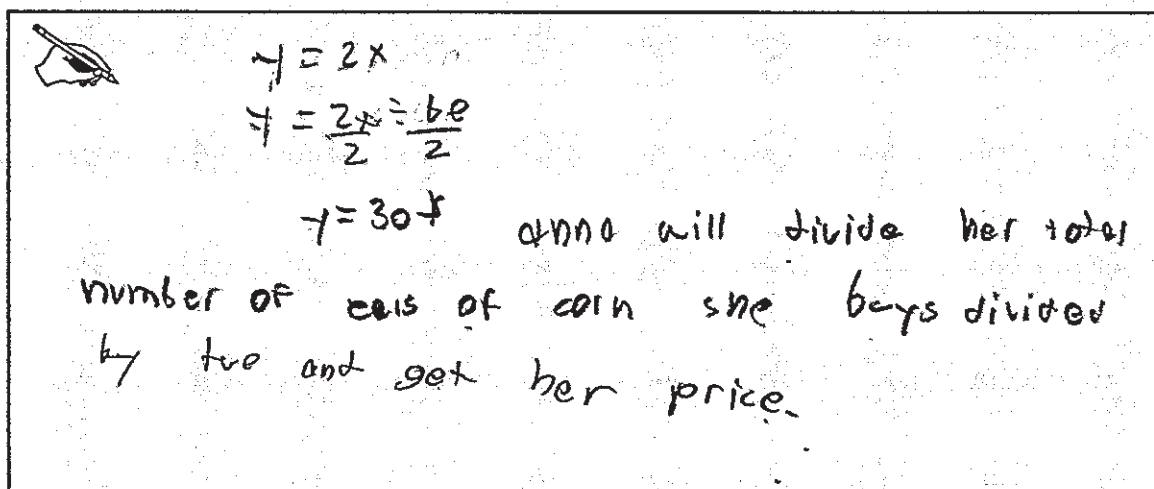 y = 2x
y = 2x/2 = 60/2
y = 30x anna will divide her total
number of ears of corn she buys divided
by two and get her price.